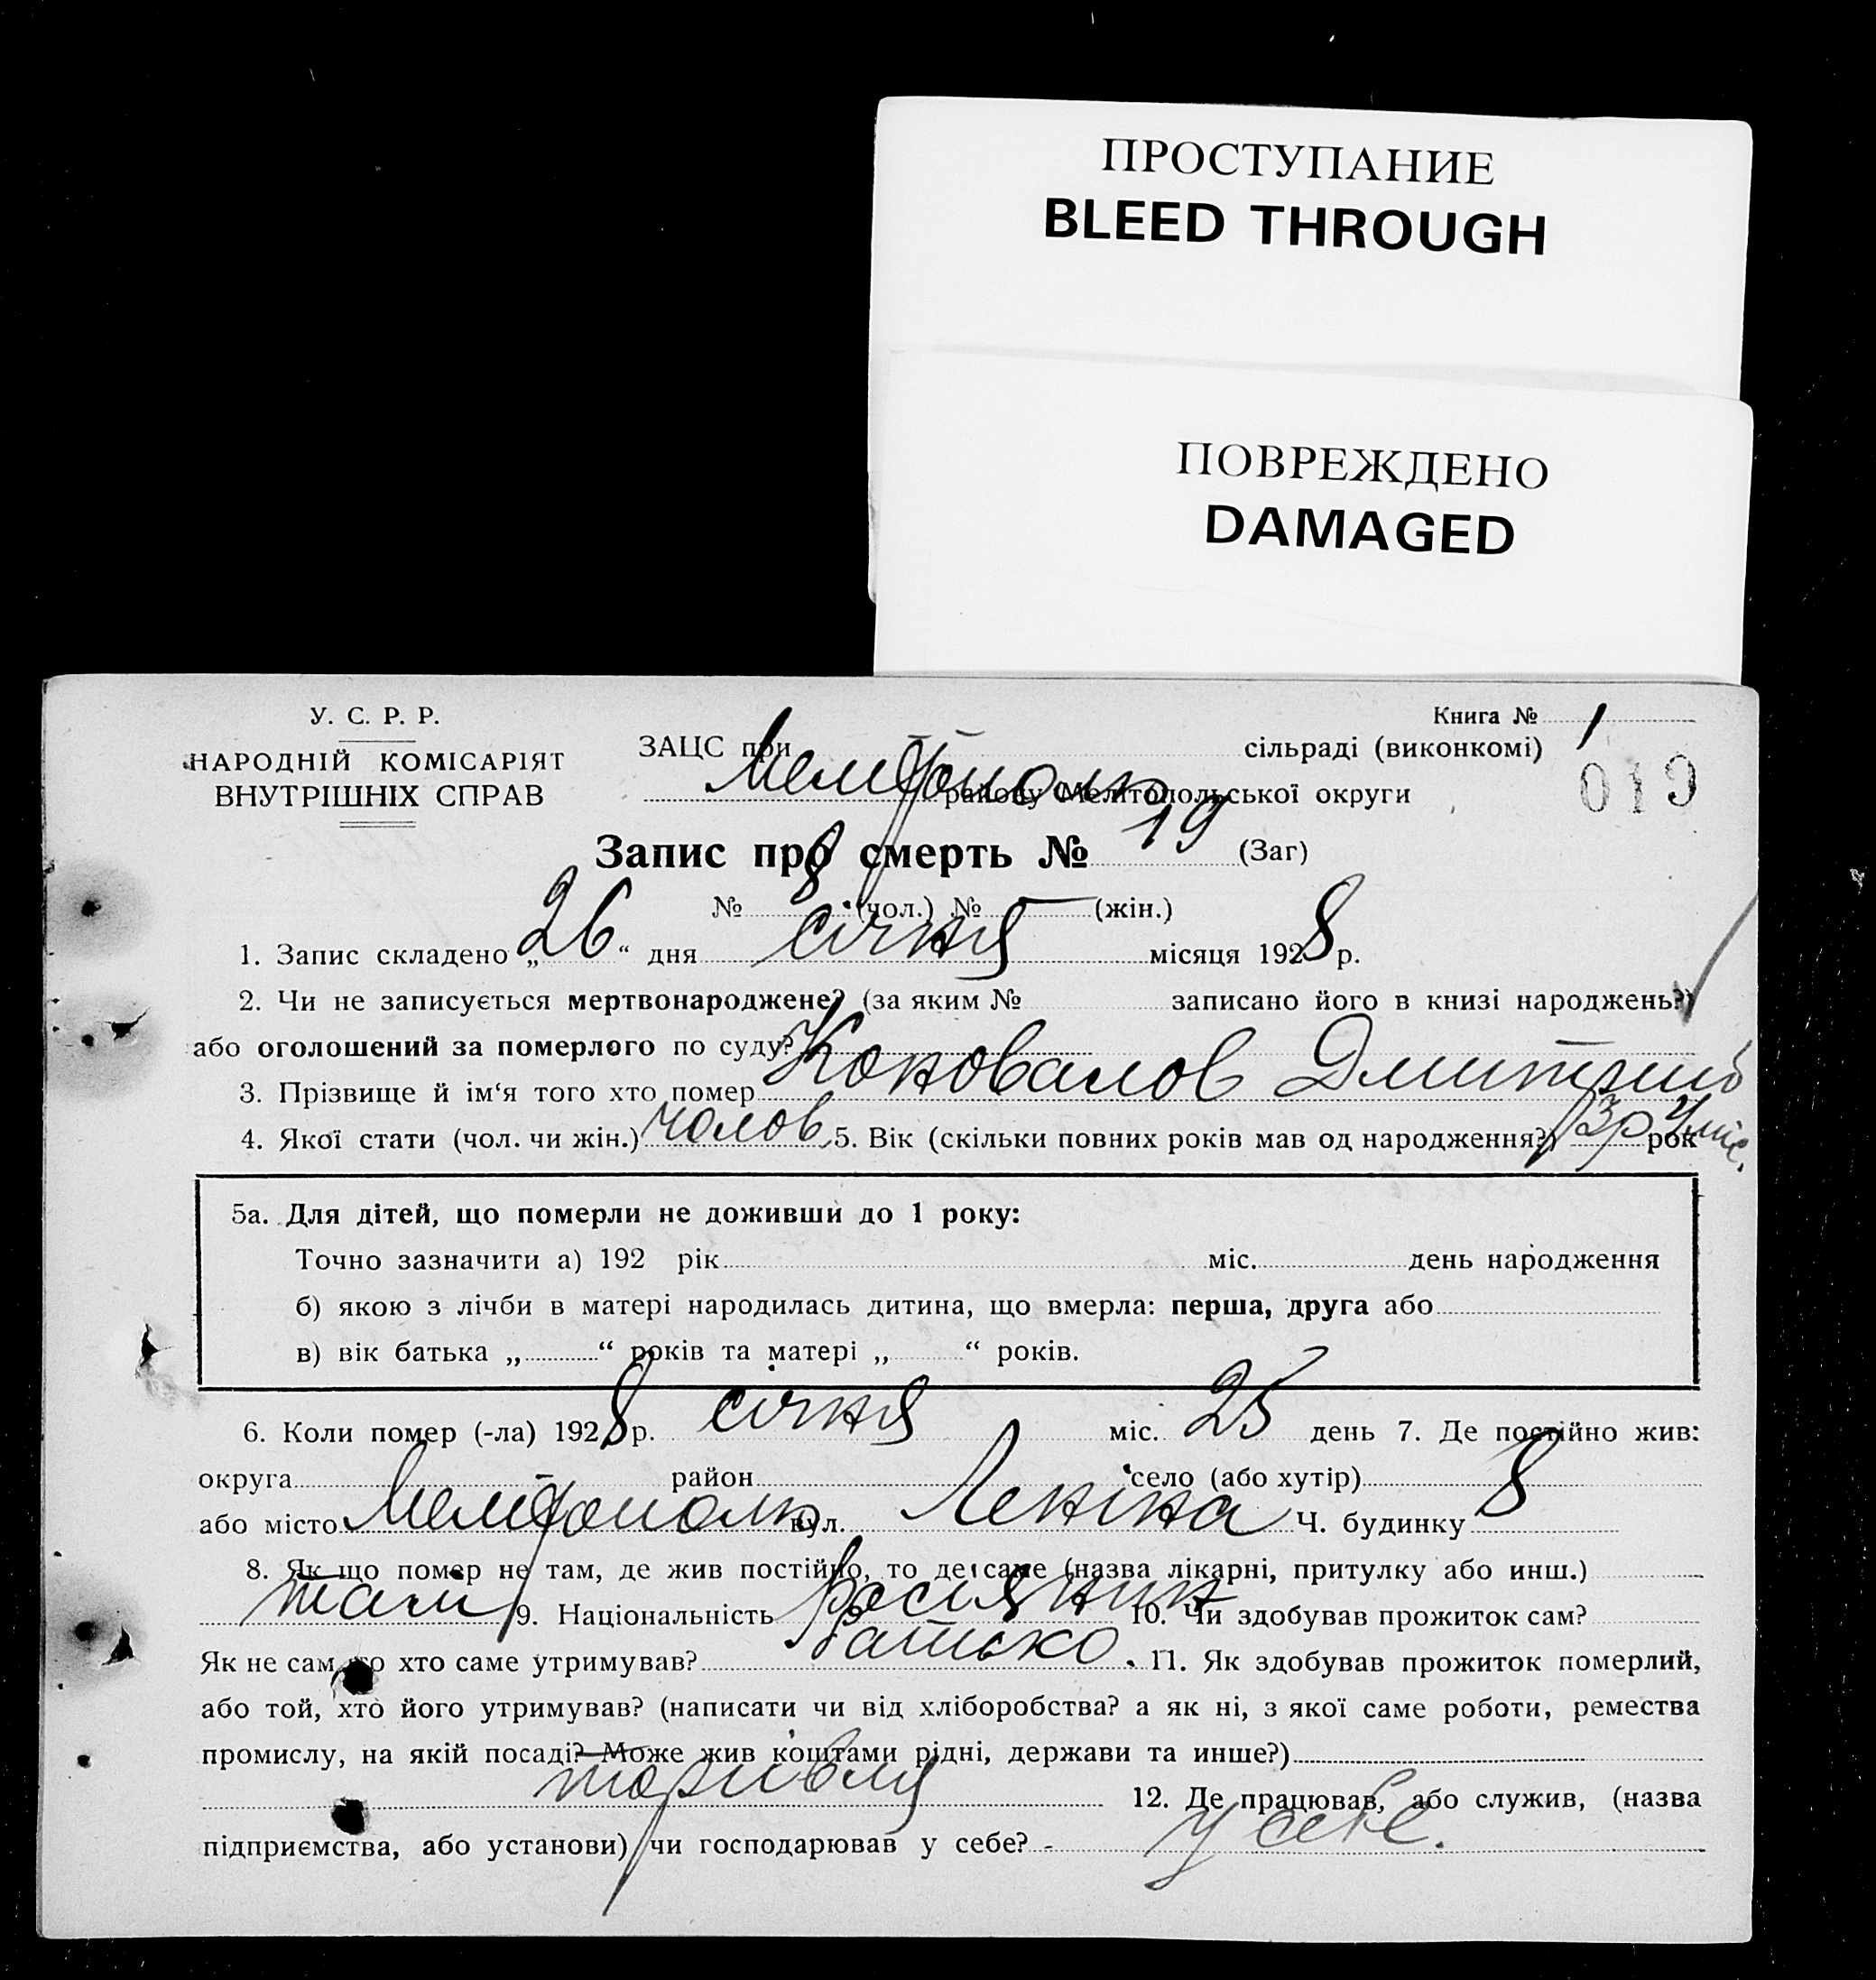 ПРОСТУПАНИЕ
BLEED THROUGH
ПОВРЕЖДЕНО
DAMAGED
У. С. Р. Р.
НАРОДНІЙ КОМІСАРІЯТ
ВНУТРІШНІХ СПРАВ
Книга № 1
ЗАЦС при сільраді (виконкомі)
019
району Мелітопольської округи
Запис про смерть № 19 (Заг)
№ 8 (чол.) № — (жін.)
1. Запис складено „26“ дня січня місяця 1928 р.
2. Чи не записується мертвонароджене? (за яким № записано його в книзі народжень?)
або оголошений за померлого по суду?
3. Прізвище й ім‘я того хто помер Коновалов Дмитрий
4. Якої стати (чол. чи жін.) чолов. 5. Вік (скільки повних років мав од народження?) 3р 4 міс. рок
5а. Для дітей, що померли не доживши до 1 року:
Точно зазначити а) 192 рік міс. день народження
б) якою з лічби в матері народилась дитина, що вмерла: перша, друга або
в) вік батька „ “ років та матері „ “ років.
6. Коли помер (-ла) 1928 р. січня міс. 25 день 7. Де постійно жив:
округа район село (або хутір)
або місто Мелітополь вул. Леніна Ч. будинку 8
8. Як що помер не там, де жив постійно, то де саме (назва лікарні, притулку або инш.)
там 9. Національність Росіянин 10. Чи здобував прожиток сам?
Як не сам, то хто саме утримував? Батько. 11. Як здобував прожиток померлий,
або той, хто його утримував? (написати чи від хліборобства? а як ні, з якої саме роботи, ремества
промислу, на якій посаді? Може жив коштами рідні, держави та инше?)
торгівля 12. Де працював, або служив, (назва
підприємства, або установи) чи господарював у себе? у себе.